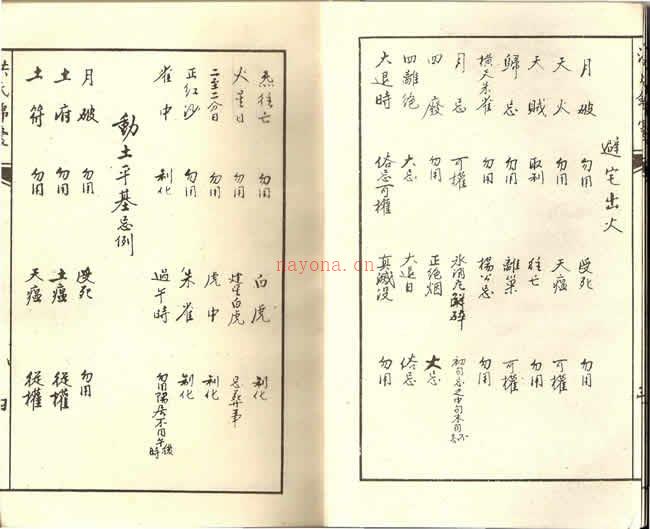 避宅出火
月破 勿用 受死 勿用
天火 勿用 天瘟 可權
天賊 取制 往亡 勿用
歸忌 勿用 離巢 可權
橫天朱雀 勿用 楊公忌 勿用
月忌 可權 冰消瓦解 初旬忌之中旬末旬不忌
四廢 勿用 正絕烟 大忌
四離絕 大忌 大退日 俗忌
大退時 俗忌可權 真滅沒 勿用
炁往亡 勿用 白虎 制化
火星日 勿用 白虎 忌葬事
二至二分日 勿用 虎中 制化
正紅沙 勿用 朱雀 制化
雀中 制化 過午時 勿用陽居不用午後時
動土平基忌例
月破 勿用 受死 勿用
土府 勿用 土瘟 從權
土符 勿用 天瘟 從權
nayona.cn